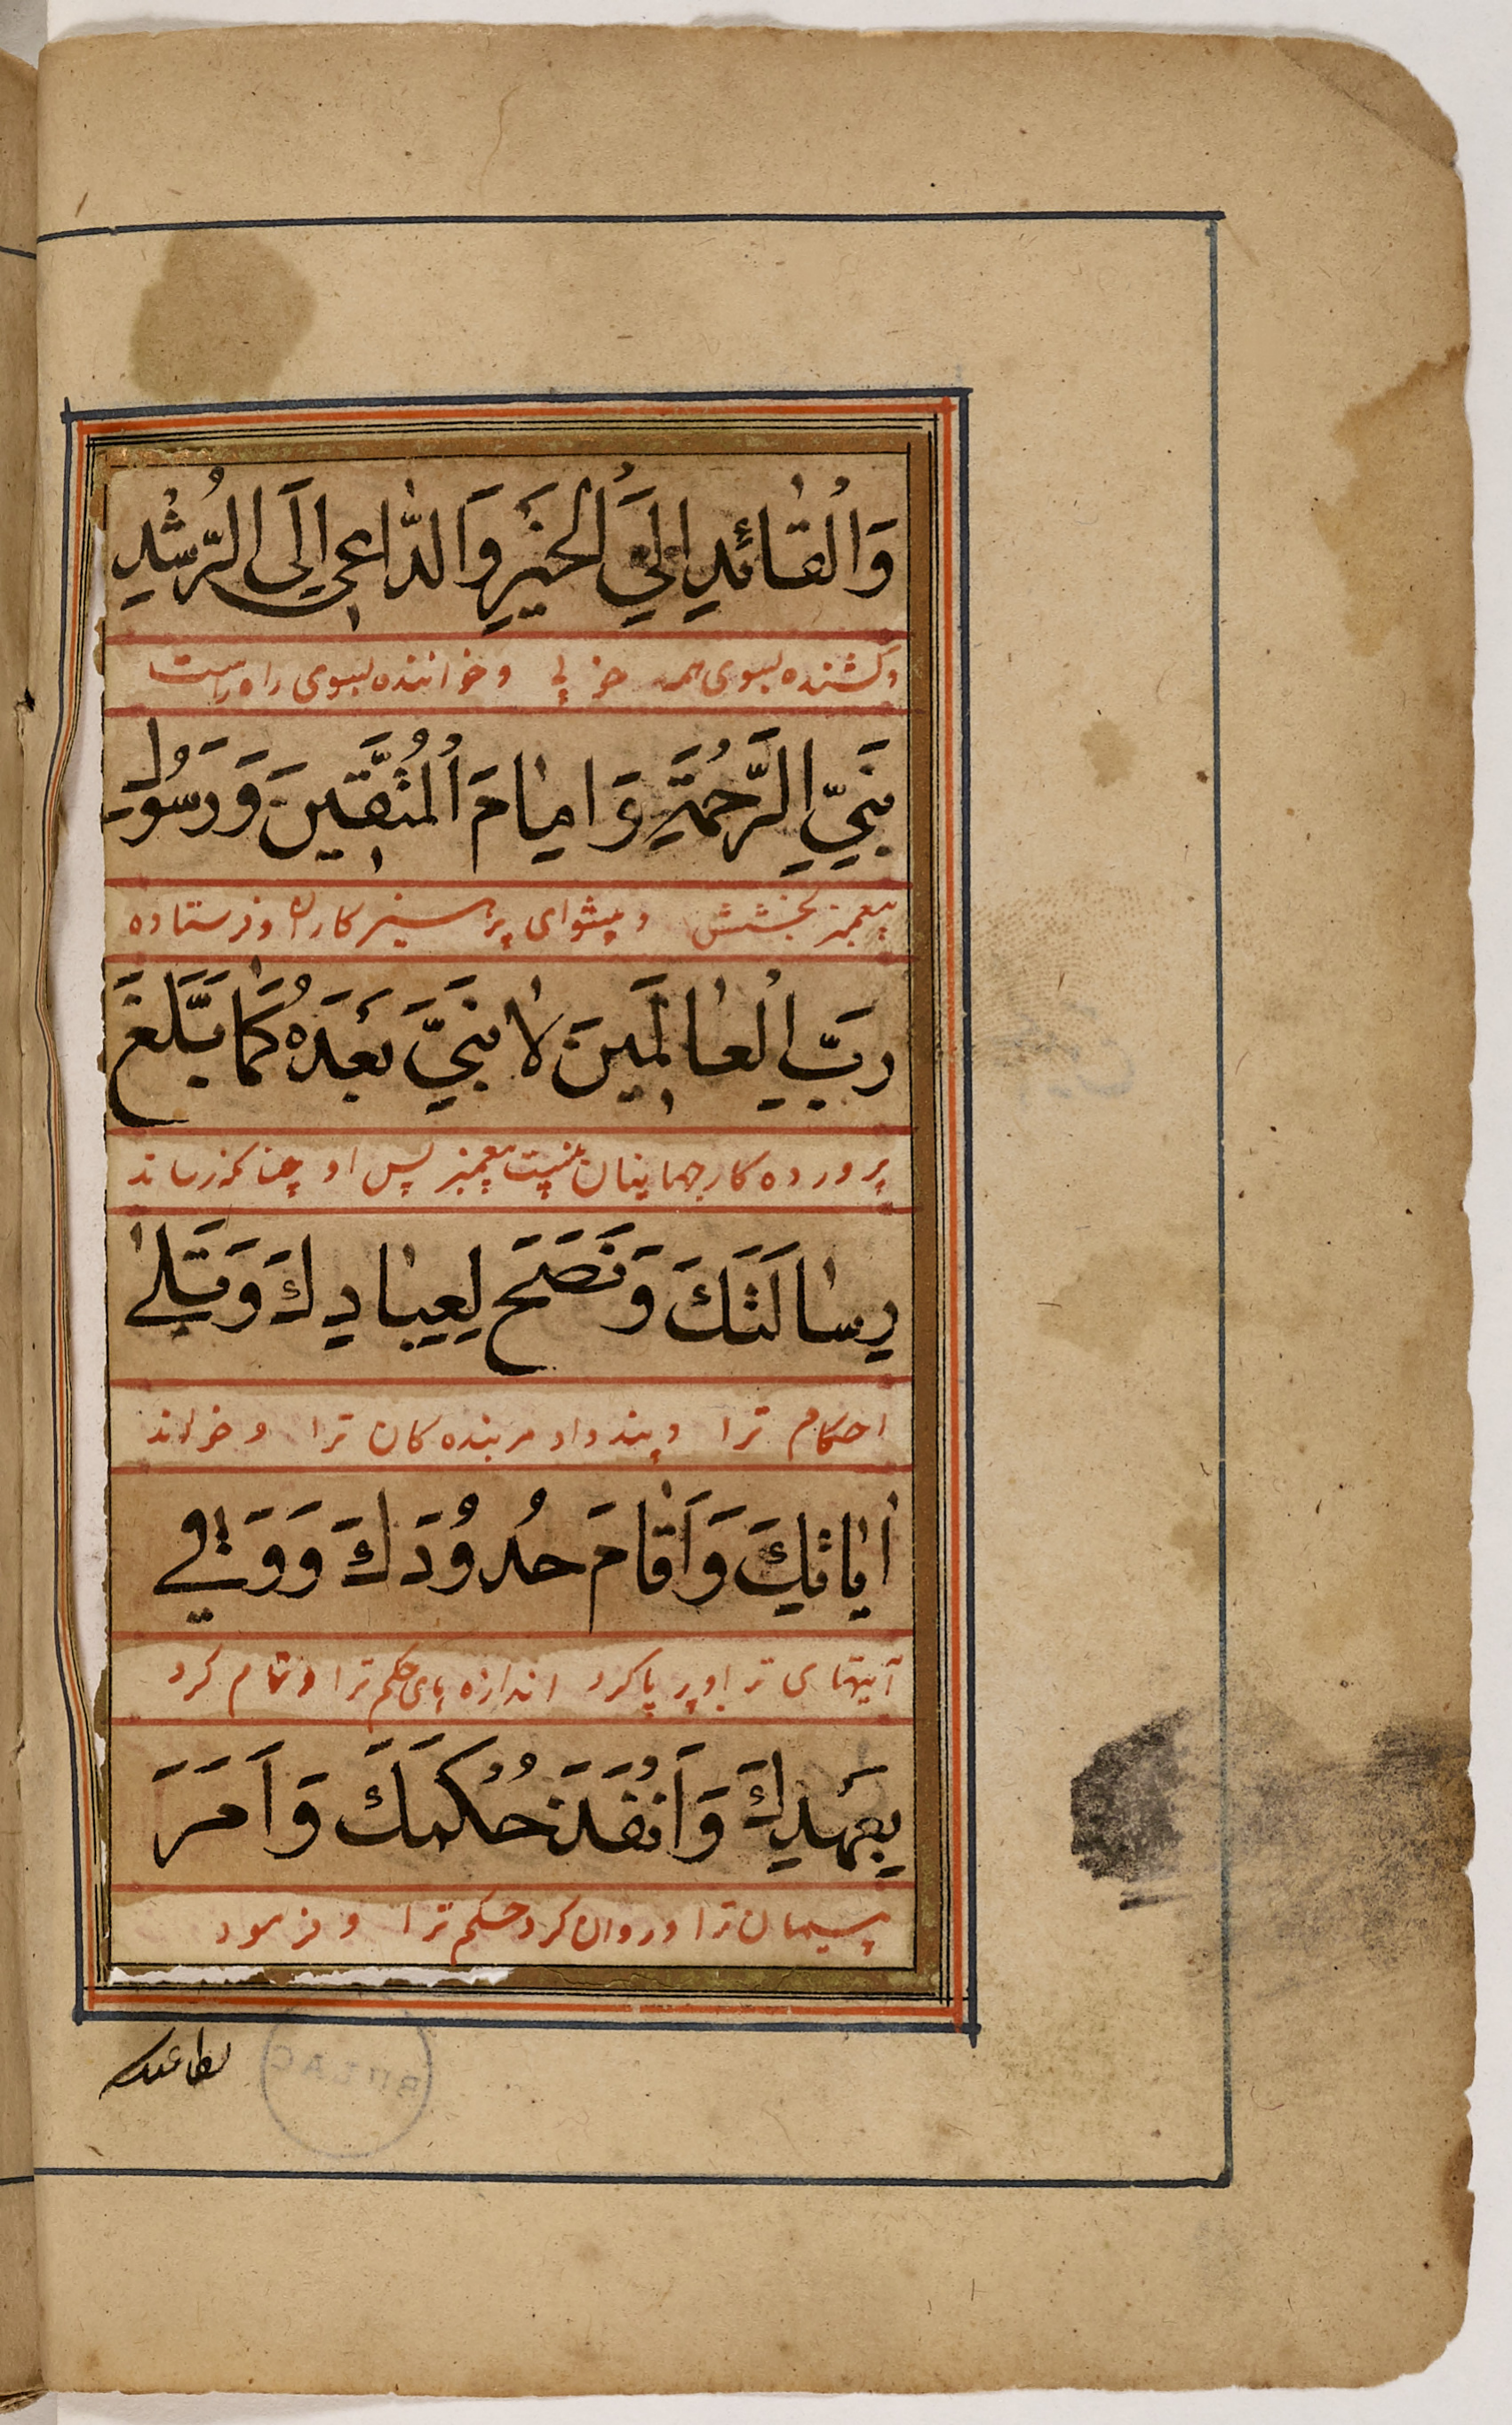 وَالْقٰائِدِ اِلَي الْخَيْرِ وَالدّٰاعِي اِلَي الرُّشْدِ
وکشنده بسوی همه خوبی و خواننده بسوی راه راست
نَبِيِّ الرَّحْمَةِ وَ اِمٰامَ الْمُتَّقٖينَ وَ رَسُولِ
پیغمبر بخشش و پیشوای پرهیزکاران و فرستاده
رَبِّ الْعٰالَمٖينَ لاٰ نَبِيَّ بَعْدَهُ كَمٰا بَلَّغَ
پرورده کار جهاینان نیست پیغمبر پس او چنانکه رساند
رِسٰالَتَكَ وَ نَصَحَ لِعِبٰادِكَ وَ تَلىٰ
احکام ترا و پند داد مر بنده کان ترا و خواند
اٰيٰاتِكَ وَ اَقٰامَ حُدُودَكَ وَ وَفٰي
آیتهای ترا و بر پا کرد اندازه های حکم ترا و تمام کرد
بِعَهْدِكَ وَ اَنْفَذَ حُكْمَكَ وَ اَمَرَ
پیمان ترا و روان کرد حکم ترا و فرمود
بطاعتک